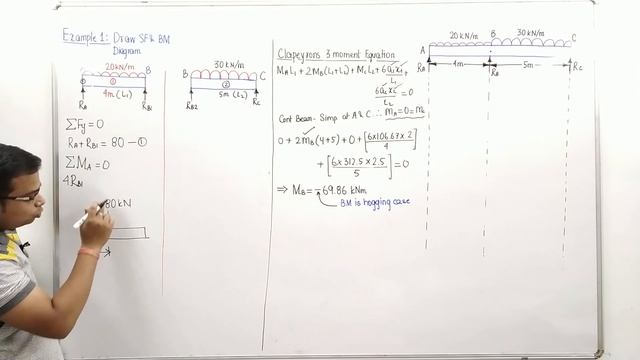 Example 1: Draw SF & BM
Diagram
20 kN/m
A B
① 
4m (L₁)
RA RB1
ΣFy = 0
RA + RB1 = 80 - ①
ΣMA = 0
4RB1
80kN
30 kN/m
B C
②
5m (L₂)
RB2 Rc
Clapeyrons 3 moment Equation
MA L1 + 2MB (L1+L2) + Mc L2 + 6a1x1/L1 +
6a2x2/L2 = 0
Cont Beam - Simp at A & C ∴ MA = 0 = Mc
0 + 2MB (4+5) + 0 + [6x106.67x2/4]
+ [6x312.5x2.5/5] = 0
⇒ MB = -69.86 kNm
BM is hogging case
20 kN/m B 30 kN/m
A C
RA 4m RB 5m Rc